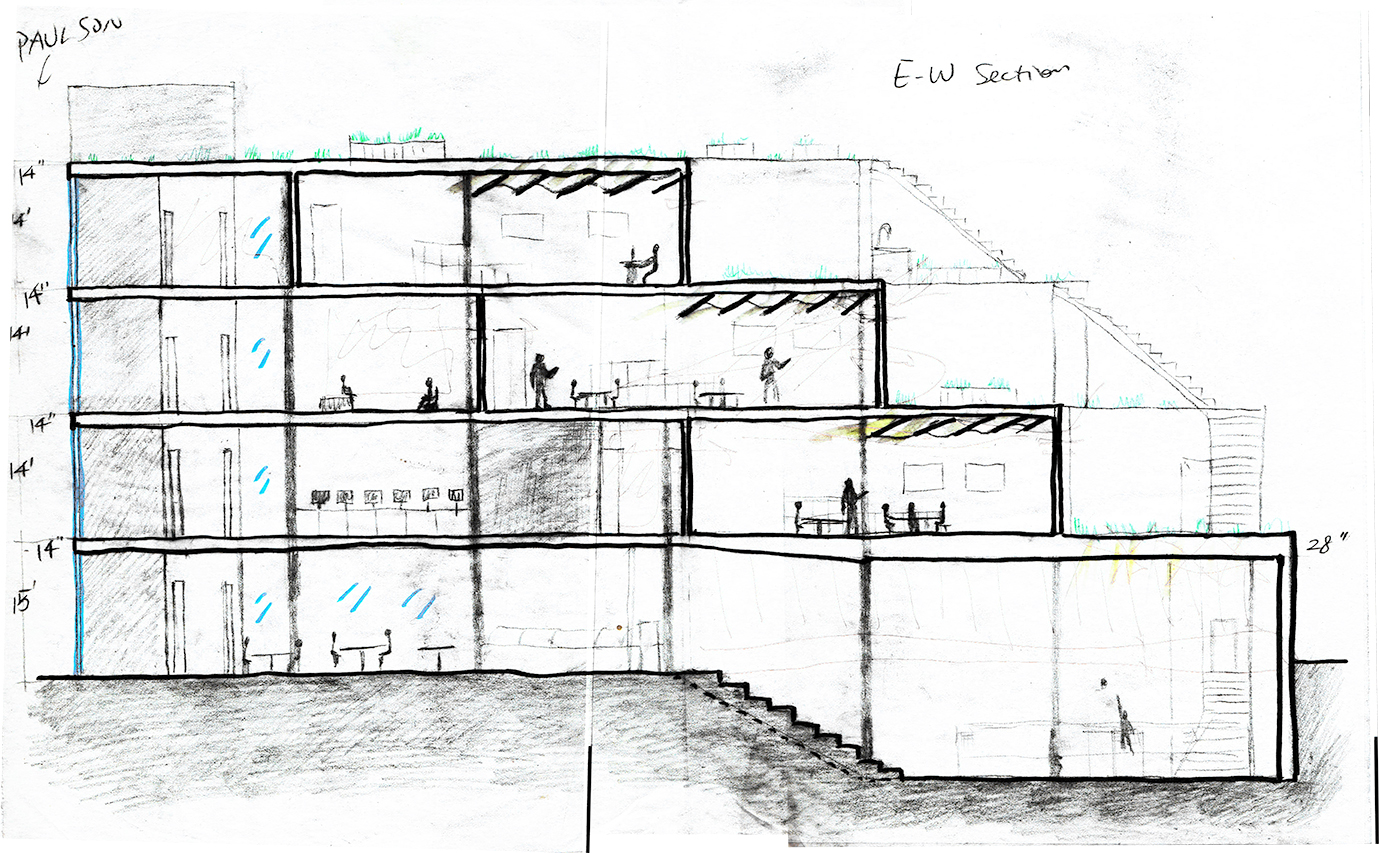 PAULSON
E-W Section
14"
14'
14"
14'
14"
14'
14"
28"
15'